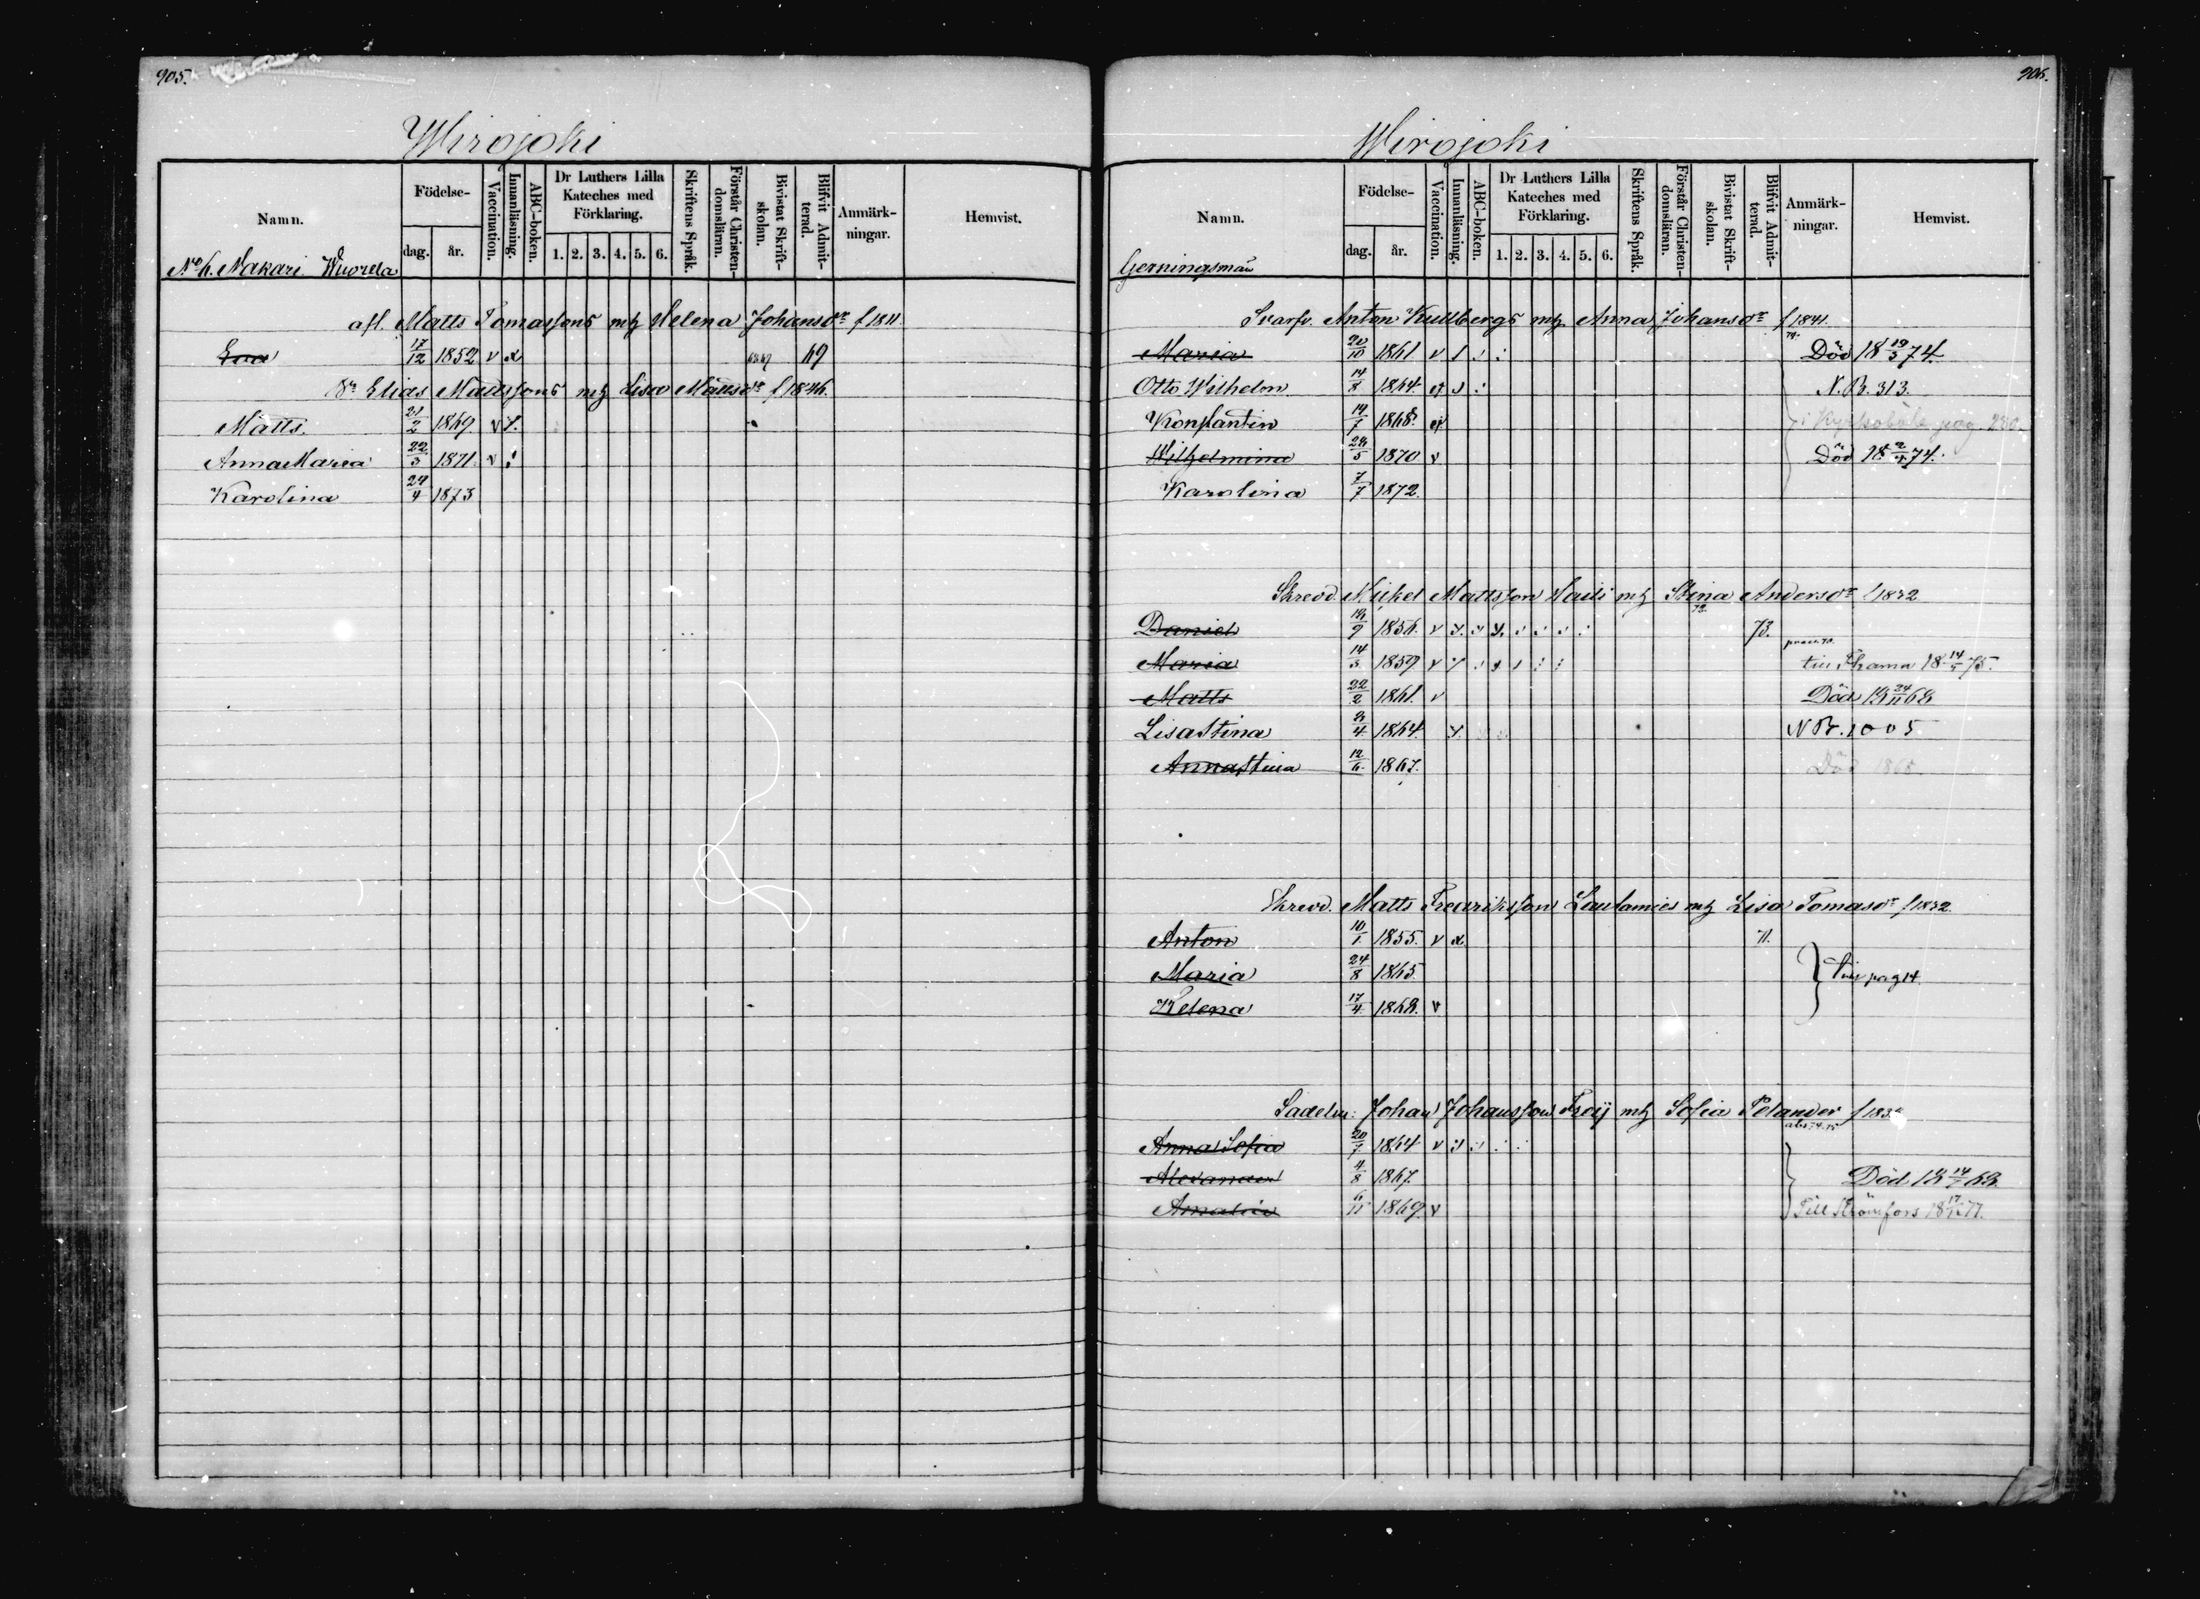 905.
Wirojoki
Namn.
Födelse-
dag.
år.
Vaccination.
Innanläsning.
ABC-boken.
Dr Luthers Lilla Kateches med Förklaring.
1. 2. 3. 4. 5. 6.
Skriftens Språk.
Förstår Christen-domsläran.
Bivistat Skrift-skolan.
Blifvit Admit-terad.
Anmärk-ningar.
Hemvist.
No 6. Nakari Wuorela
afl. Matts Tomassons mg Helena Johansdr f 1811
Eva 17/12 1852 v x 69
Dr Elias Mattssons mg Lisa Mattsdr f 1846.
Matts. 21/2 1869 v
Anna Maria 22/3 1871. v
Karolina 24/4 1873
906.
Wirojoki
Namn.
Födelse-
dag.
år.
Vaccination.
Innanläsning.
ABC-boken.
Dr Luthers Lilla Kateches med Förklaring.
1. 2. 3. 4. 5. 6.
Skriftens Språk.
Förstår Christen-domsläran.
Bivistat Skrift-skolan.
Blifvit Admit-terad.
Anmärk-ningar.
Hemvist.
Gerningsmän
Svarfv. Anton Kullbergs mg Anna Johansdr f 1841.
Maria 20/10 1861 v Död 18 19/3 74.
Otto Wilhelm 14/8 1864. N.B. 313.
Konstantin 14/7 1868. pag. 280.
Wilhelmina 1870 v Död 18 74.
Karolina 7/7 1872.
Skredd. Mickel Mattsson Haili mg Stina Andersdr f 1832
Daniel 1856. v 73.
Maria 14/3 1859 v 18 14/5 75.
Matts 22/2 1861. v Död 18 24/11 68
Lisa Stina 1864. N Br. 1005
Anna Stina 12/6 1867. Död 1868.
Skredd. Matts Fredriksson Laulamies mg Lisa Tomasdr f 1832.
Anton 10/1 1855. v x 71.
Maria 24/8 1865. pag 14
Helena 17/4 1868. v
Sadelm: Johan Johansson Freij mg Sofia Pelander
Anna Sofia 20/7 1864 v
Alexander 4/8 1867. Död 18 14/7 68.
Amalia 6/11 1869. v Till Strömfors